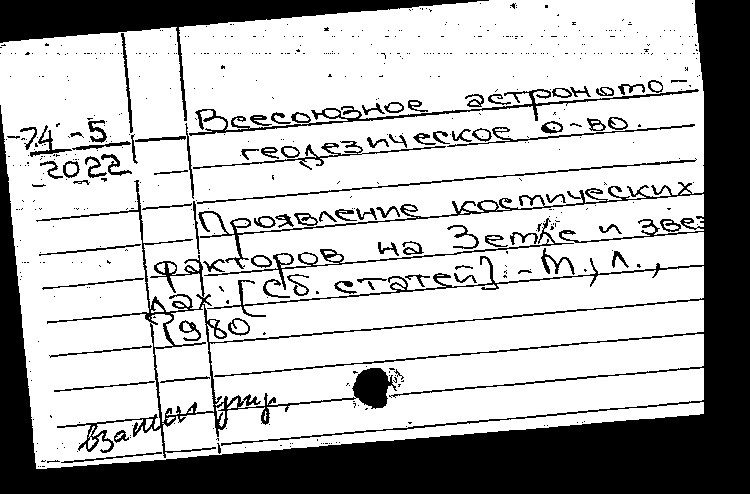 74-5
2022
Всесоюзное астрономо-
геодезическое о-во.
Проявление космических
факторов на Земле и звез
дах: [Сб. статей]. - М., Л.,
1980.
взамен утр.